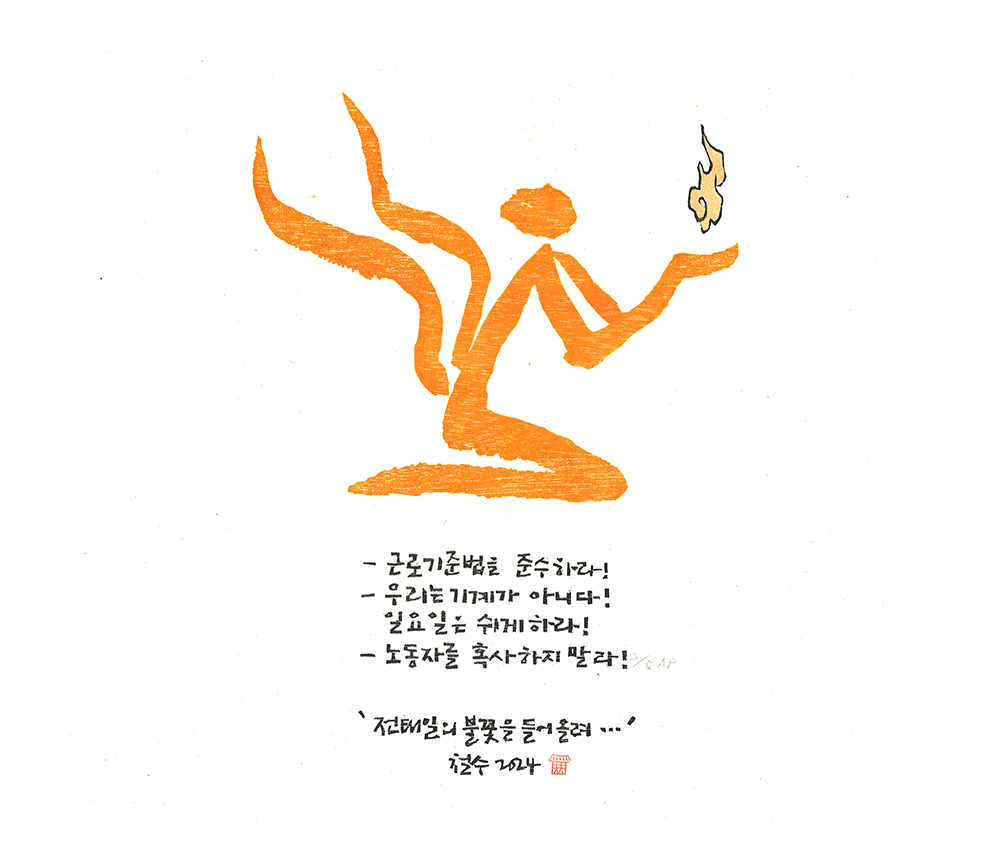 - 근로기준법을 준수하라!
- 우리는 기계가 아니다!
일요일은 쉬게 하라!
- 노동자를 혹사하지 말라!
/5 AP
'전태일의 불꽃을 들어올려 ...'
철수 2024